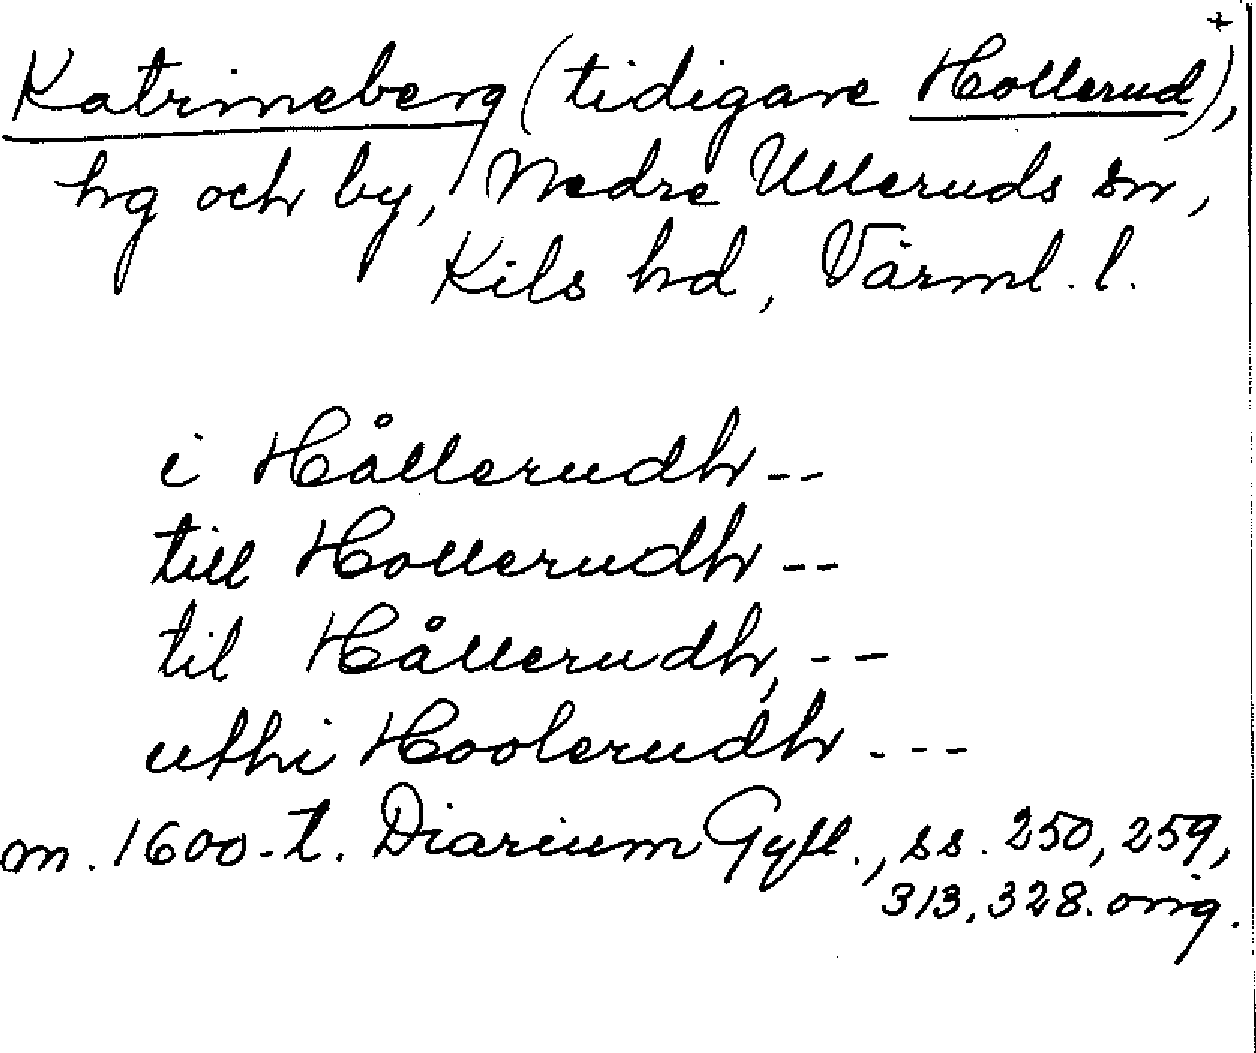 Katrineberg (tidigare Hollerud)+,
hg och by, Nedre Ulleruds sn,
Kils hd, Värml. l.
i Hållerudh --
till Hollerudh --
til Hållerudh, --
uthi Hoolerudh ---
m. 1600-t. Diarium Gyll., ss. 250, 259,
313, 328. orig.